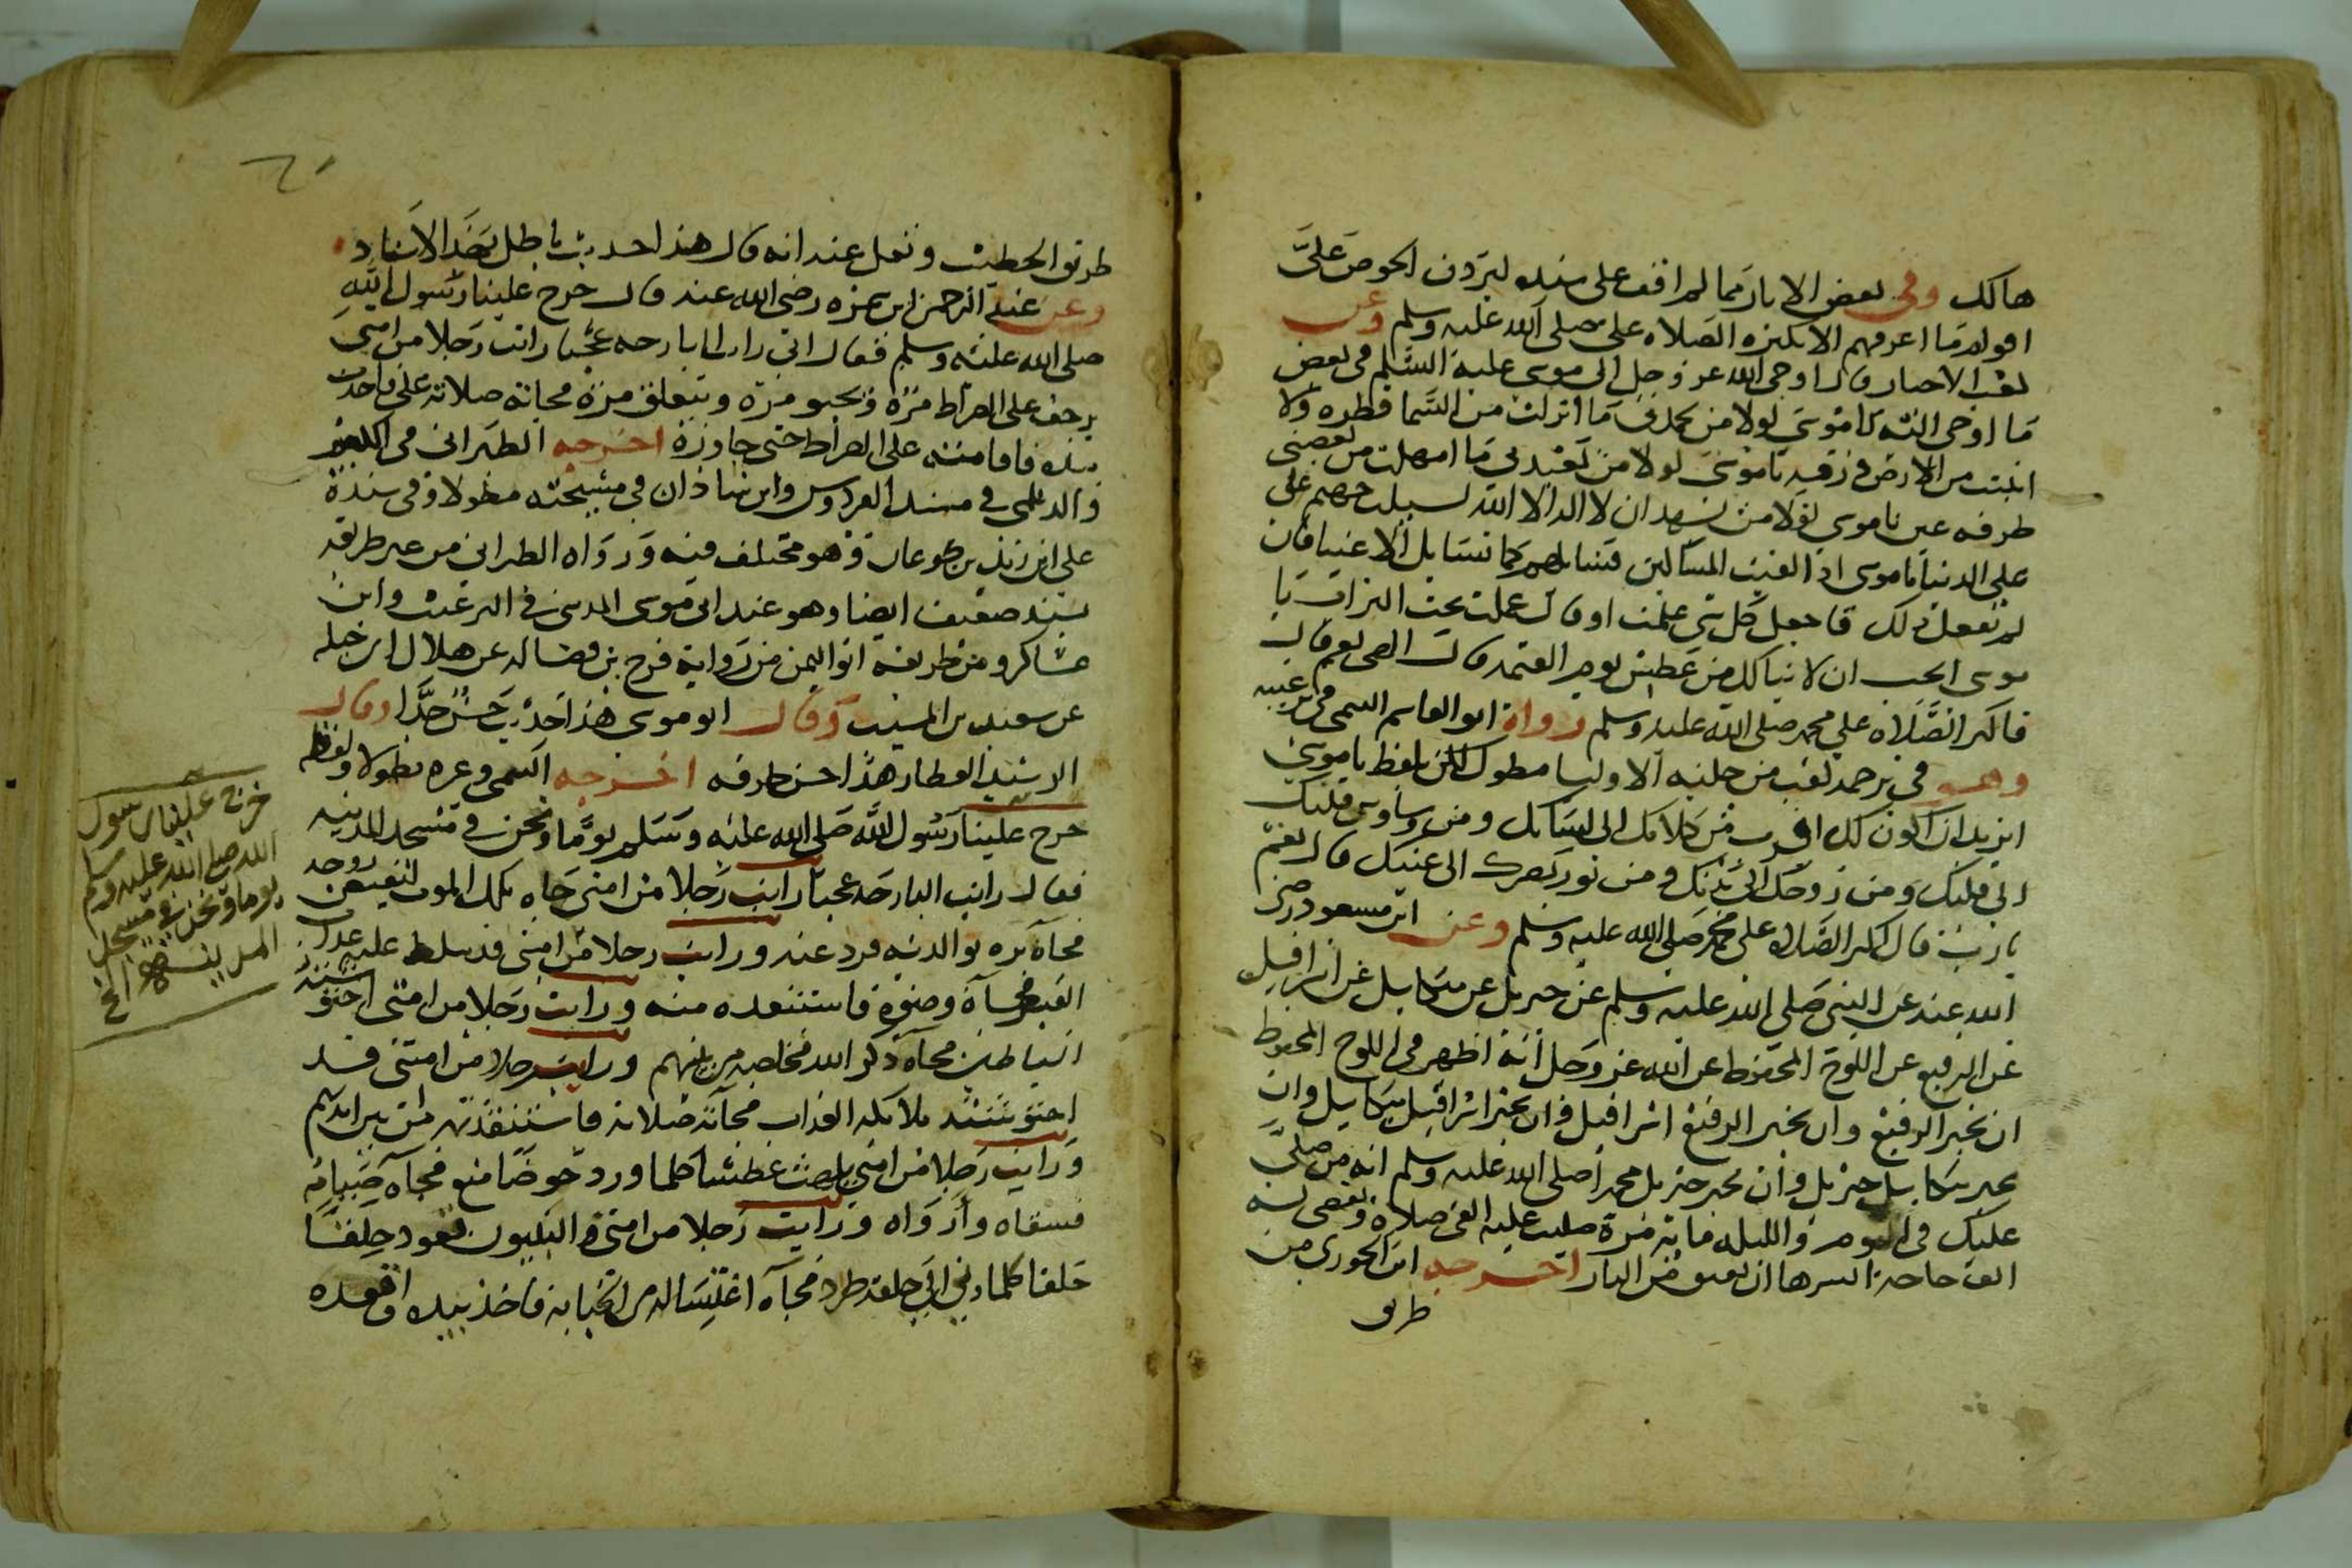 هالك وفي بعض الاثار مما لم اقف على سنده ليردن الحوض علي
اقوام ما اعرفهم الا بكثرة الصلاه علي صلى الله عليه وسلم وعن
كعب الاحبار قال اوحى الله عز وجل الى موسى عليه السلام في بعض
ما اوحى اليه يا موسى لولا من يحمدني ما انزلت من السما قطره ولا
انبتت من الارض ورقه يا موسى لولا من يعبدني ما امهلت من يعصيني
طرفه عين يا موسى لولا من يشهد ان لا اله الا الله لسيلت جهنم على
على الدنيا يا موسى اذا لقيت المساكين فسايلهم كما تسايل الاغنيا فان
لم تفعل ذلك فاجعل كل شي علمت او قال عملت تحت التراب يا
موسى اتحب ان لا ينالك من عطش يوم القيمه قال الهي نعم قال
فاكثر الصلاه علي محمد صلى الله عليه وسلم رواه ابو القاسم التيمي في ترغيبه
وهو في ترجمة كعب من حلية الاوليا مطول لكن بلفظ يا موسى
اتريد ان اكون لك اقرب من كلامك الى لسانك ومن وساوس قلبك
الى قلبك ومن روحك الى بدنك ومن نور بصرك الى عينك قال نعم
يا رب قال اكثر الصلاه على محمد صلى الله عليه وسلم وعن ابن مسعود رضي
الله عنه عن النبي صلى الله عليه وسلم عن جبريل عن ميكاييل عن اسرافيل
عن الرفيع عن اللوح المحفوظ عن الله عز وجل انه اظهر في اللوح المحفوظ
ان يخبر الرفيع وان يخبر الرفيع اسرافيل وان يخبر اسرافيل ميكاييل وان
يخبر ميكاييل جبريل وان يخبر جبريل محمد اصلى الله عليه وسلم انه من صلى
عليك في اليوم والليله مائة مرة صليت عليه الفي صلاه ويقضى له
الف حاجة ايسرها ان يعتق من النار اخرجه ابن الجوزي من
طريق
طريق الخطيب ونقل عنه انه قال هذا حديث باطل بهذا الاسناد
وعن عبد الرحمن ابن سمره رضي الله عنه قال خرج علينا رسول الله
صلى الله عليه وسلم فقال اني رايت البارحه عجبا رايت رجلا من امتي
يزحف على الصراط مرة ويحبو مرة ويتعلق مرة فجاته صلاته علي فاخذت
بيده فاقامته على الصراط حتى جاوزه اخرجه الطبراني في الكبير
والديلمي في مسند الفردوس وابن شاذان في مشيخته مطولا وفي سنده
على ابن زيد بن جدعان وهو مختلف فيه ورواه الطبراني من غير طريقه
بسند ضعيف ايضا وهو عند ابي موسى المديني في الترغيب وابن
عساكر ومن طريقه ابو اليمن من رواية فرج بن فضاله عن هلال ابي جبله
عن سعيد بن المسيب وقال ابو موسى هذا حديث حسن جدا وقال
الرشيد العطار هذا احسن طرقه اخرجه التيمي وغيره مطولا ولفظه
خرج علينا رسول الله صلى الله عليه وسلم يوما ونحن في مسجد المدينه
فقال رايت البارحه عجبا رايت رجلا من امتي جاه ملك الموت ليقبض روحه
فجآه بره بوالديه فرد عنه ورايت رجلا من امتي قد سلط عليه عذاب
القبر فجآه وضوءه فاستنقده منه ورايت رجلا من امتي احتوشته
الشياطين فجآه ذكر الله فخلصه من بينهم ورايت رجلا من امتي قد
احتوشته ملايكه العذاب فجآته صلاته فاستنقذته من بين ايديهم
ورايت رجلا من امتي يلهث عطشا كلما ورد حوضا منع فجآه صيامه
فسقاه وارواه ورايت رجلا من امتي والنبيون قعود حلقا
حلقا كلما دنى الى حلقة طرد فجآه اغتساله من الجنابه فاخذ بيده واقعده
خرج علينا رسول
الله صلى الله عليه وسلم
يوما ونحن في مسجد
المدينة الخ